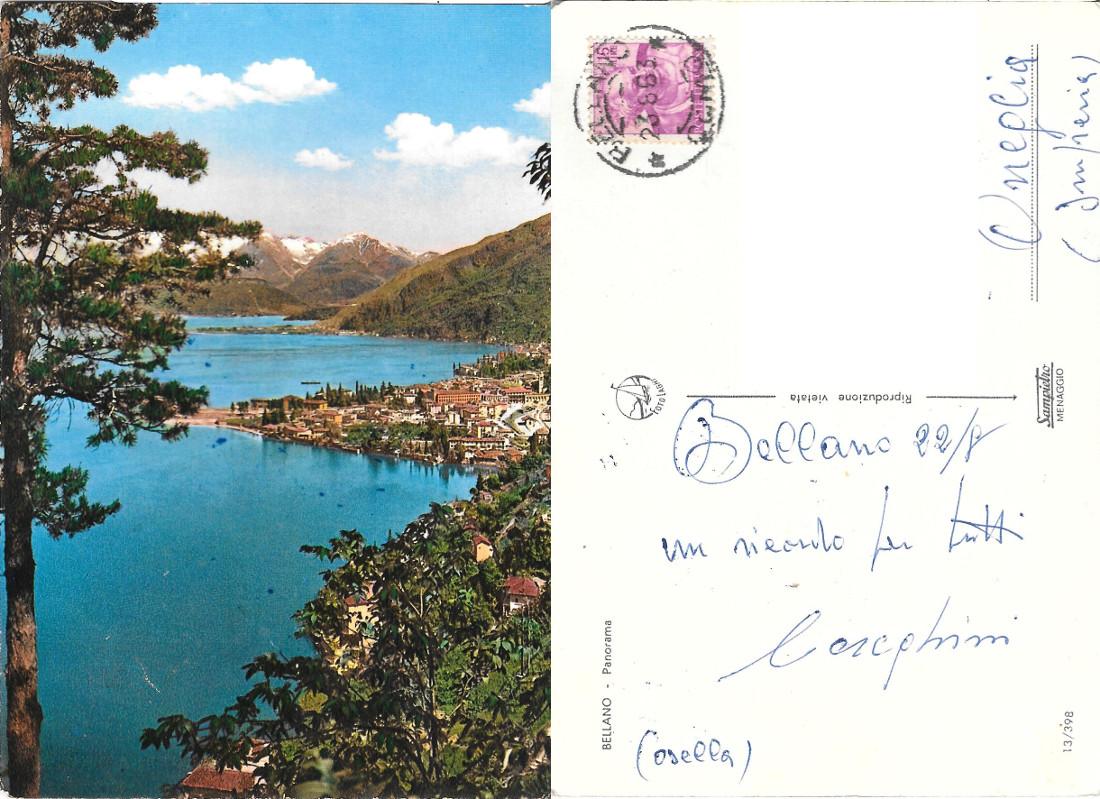 15
BELLANO
23-8-63
* (COMO) *
Oneglia
(Imperia)
FOTO LABRI
Riproduzione vietata
Sampietro
MENAGGIO
Bellano 22/8
un ricordo per tutti
Casaghini
(osella)
BELLANO - Panorama
13/398